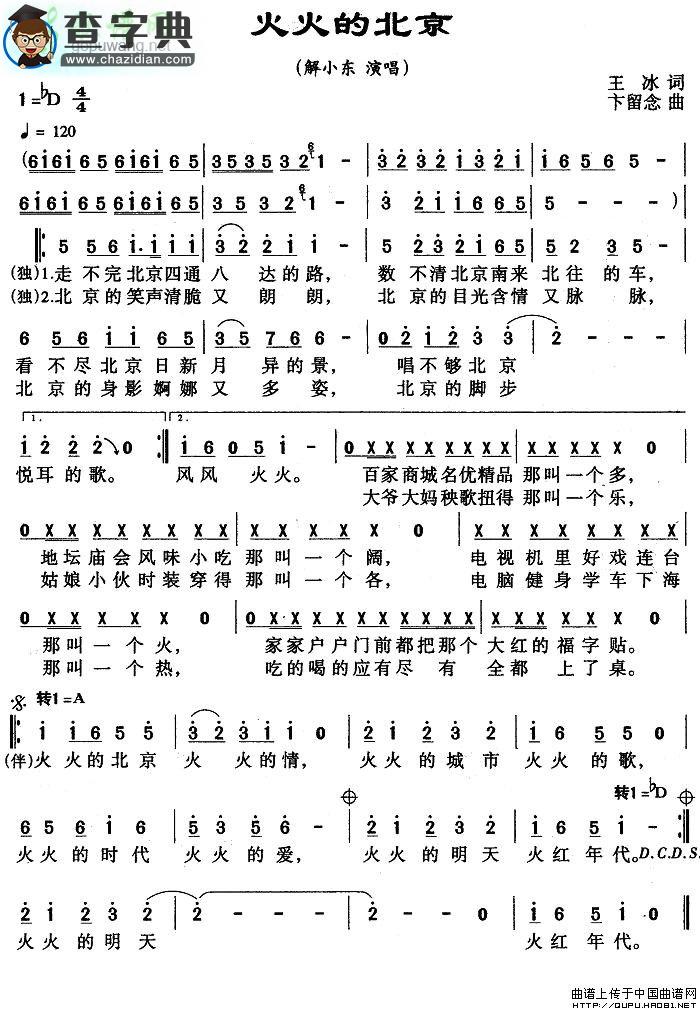 查字典
gopuwang.net
www.chazidian.com
火火的北京
(解小东 演唱)
王 冰 词
卞留念 曲
1=♭D 4/4
♩= 120
(6i6i 6 5 6i6i 6 5 | 3535 3 2 1 - | 3 2 3 2 i 3 2 i | i 6 5 6 5 - |
6i6i 6 5 6i6i 6 5 | 3 5 3 2 1 - | 3 2 i i 6 6 5 | 5 - - - )
5 5 6 i. i i i | 3 2 2 i - | 5 2 3 2 i 6 5 | 5 2 3 5 - |
(独)1.走 不完北京四通 八 达的路, 数 不清北京南来 北往 的车,
(独)2.北 京的笑声清脆 又 朗 朗, 北 京的目光含情 又 脉 脉,
6 5 6 i i 6 5 | 3 5 7 6 6 - | 0 2 i 2 3 3 | 2 - - - |
看 不尽北京日新 月 异的景, 唱不够北京
北 京的身影婀娜 又 多 姿, 北京的脚步
1. 2.
i 2 2 2 0 :| i 6 0 5 i - | 0 X X X X X X X | X X X X X 0 |
悦耳的歌。 风风 火火。 百家商城名优精品 那叫一个多,
大爷大妈秧歌扭得 那叫一个乐,
0 X X X X X X X | X X X X X 0 | X X X X X X X X |
地坛庙会风味小吃 那叫一个阔, 电视机里好戏连台
姑娘小伙时装穿得 那叫一个各, 电脑健身学车下海
0 X X X X 0 | 0 X X X X X X X X X | X X X X X X 0 |
那叫一个火, 家家户户门前都把那个 大红的福字贴。
那叫一个热, 吃的喝的应有尽 有 全都 上了桌。
转1=A
i i 6 5 5 | 3 2 3 i i i 0 | 2 i 2 3 2 | i 6 5 5 0 |
(伴)火火的北京 火 火的情, 火火的城市 火火 的歌,
转1=♭D
6 5 6 i 6 | 5 3 5 6 - | 2 i 2 3 2 | i 6 5 i - :|
火火的时代 火火的爱, 火火的明天 火红年代。D.C.D.S.
2 i 2 3 2 | 2 - - - | 2 - - 0 | i 6 5 i - |
火火的明天 火红年代。
曲谱上传于中国曲谱网
http://QUPU.HAO81.NET